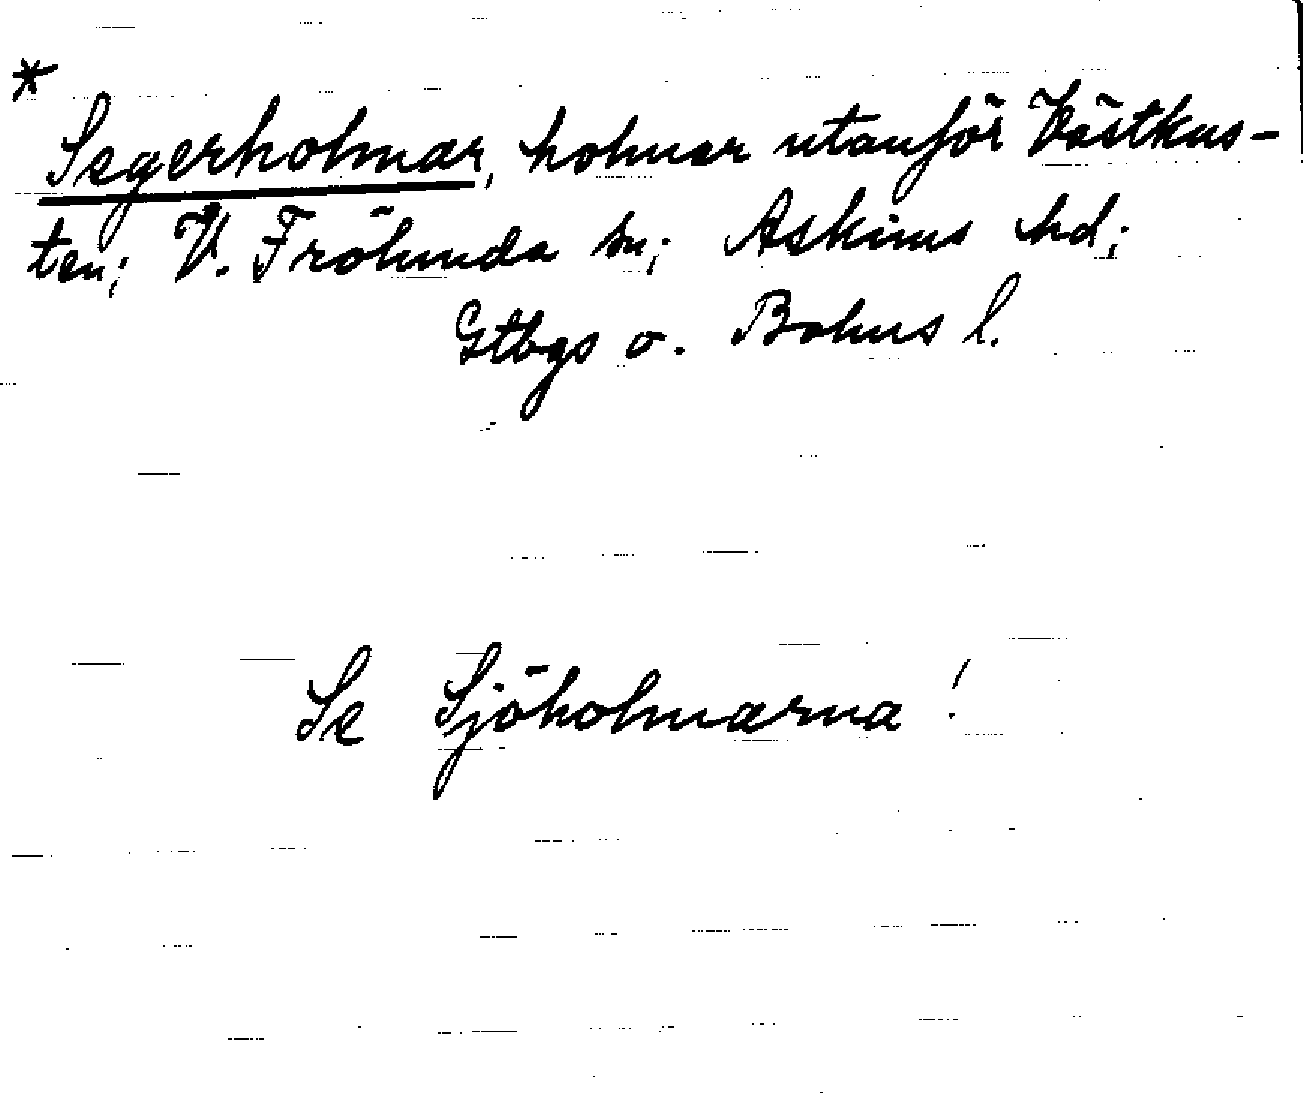 *
Segerholmar, holmar utanför Västkus-
ten; V. Frölunda sn; Askims hd;
Gtbgs o. Bohus l.
Se Sjöholmarna!